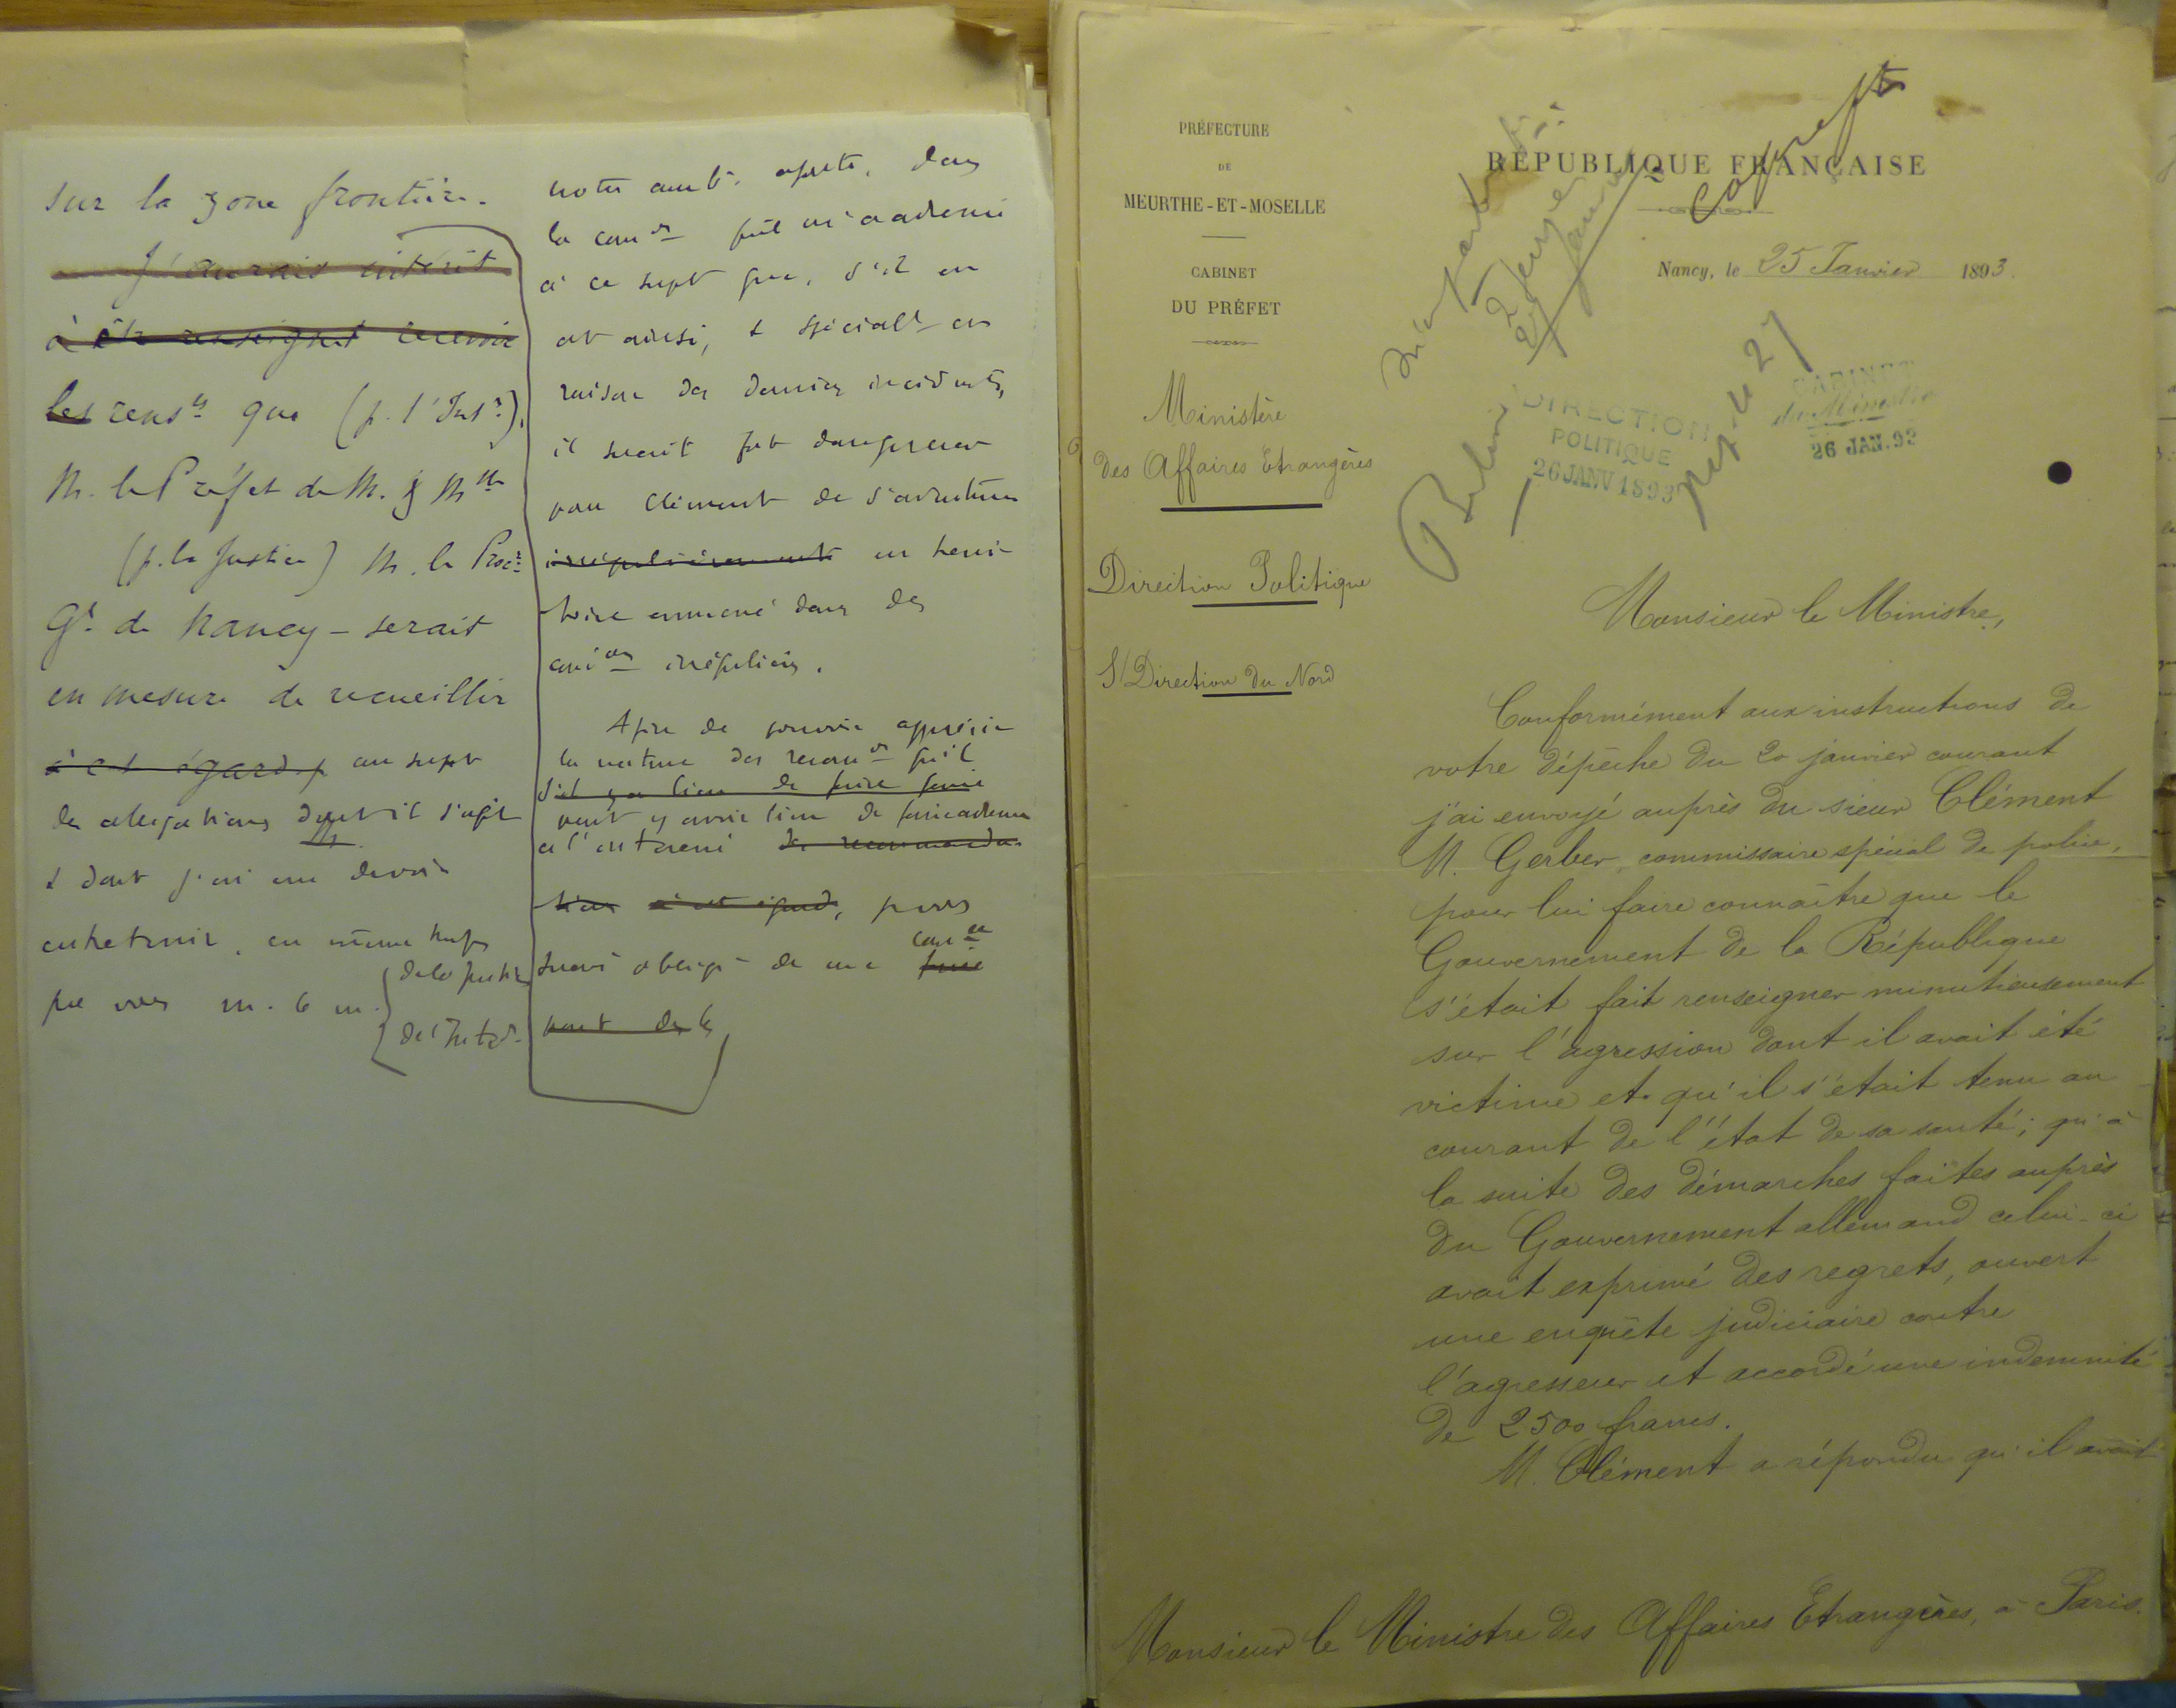 sur la zone frontière.
J'aurais intérêt
à être renseigné recevoir
les rensts que (p. l'Intr).
M. le Préfet de M. & Mlle
(p. la Justice) M. le Procr
Gl de Nancy – serait
en mesure de recueillir
à cet égard, au sujet
des allégations dont il s'agit
& dont j'ai cru devoir
entretenir, en même temps
que vous M. le m.
de la Justice
de l'Intér.
notre amb. ajoute, dans
la conv
à ce sujet que, s'il en
est ainsi, & spécialt en
raison des derniers incidents,
il serait fort dangereux
pour Clément de s'aventurer
irrégulièrement en terri-
toire annexé dans des
condons irrégulières.
Afin de pouvoir apprécier
la nature des recomons qu'il
s'il y a lieu de faire faire
peut y avoir lieu de faire adresser
à l'intéressé des recommanda-
tions à cet égard, je vous
serais obligé de me
faire
part de
PRÉFECTURE
DE
MEURTHE-ET-MOSELLE
CABINET
DU PRÉFET
Ministère
des Affaires Etrangères
Direction Politique
S/Direction du Nord
RÉPUBLIQUE FRANÇAISE
Nancy, le 25 Janvier 1893.
Berlin
DIRECTION
POLITIQUE
26 JANV 1893
CABINET
du Ministre
26 JAN. 93
Monsieur le Ministre,
Conformément aux instructions de
votre dépêche du 20 janvier courant
j'ai envoyé auprès du sieur Clément
M. Gerber, commissaire spécial de police,
pour lui faire connaître que le
Gouvernement de la République
s'était fait renseigner minutieusement
sur l'agression dont il avait été
victime et qu'il s'était tenu au
courant de l'état de sa santé; qu'à
la suite des démarches faites auprès
du Gouvernement allemand celui-ci
avait exprimé des regrets, ouvert
une enquête judiciaire contre
l'agresseur et accordé une indemnité
de 2500 francs.
M. Clément a répondu qu'il avait
Monsieur le Ministre des Affaires Etrangères, à Paris.